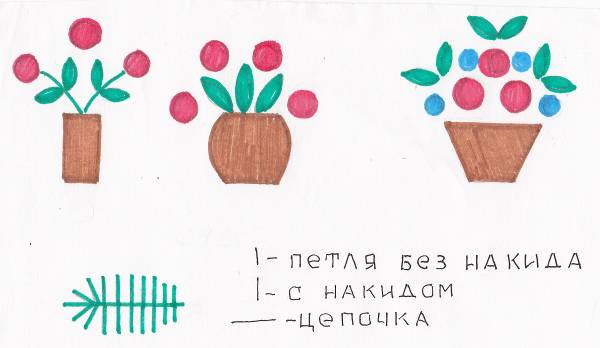 I - петля без накида
I - с накидом
— - цепочка